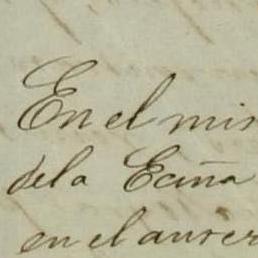 En el mis
dela Eciña
en el anver